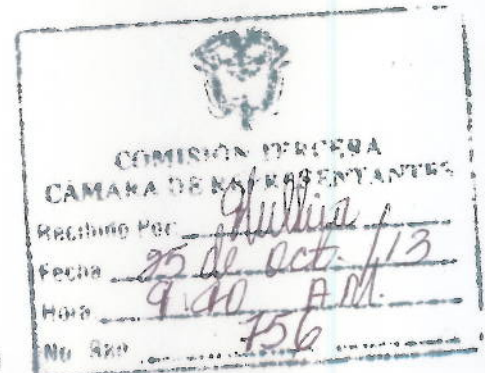 COMISIÓN TERCERA
CAMARA DE REPRESENTANTES
Recibido Por
Fecha 25 de Oct. /13
Hora 9:40 A.M.
No. 756